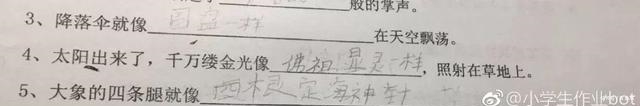 般的掌声。
3、降落伞就像圆盘一样在天空飘荡。
4、太阳出来了，千万缕金光像佛祖显灵一样，照射在草地上。
5、大象的四条腿就像四根定海神针
@小学生作业bot